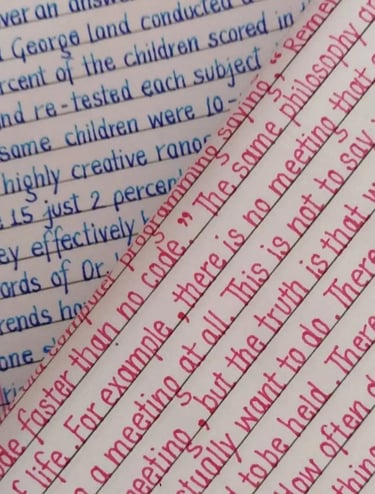 ver an answ
George land conducted a
rcent of the children scored in
nd re-tested each subject
same children were 10-
highly creative rang
15 just 2 percen
ey effectively
ords of Dr.
rends ha
one s
computer programming saying, " Remem
de faster than no code." The same philosophy
life. For example, there is no meeting that
a meeting at all. This is not to say
meeting, but the truth is that
tually want to do. There
to be held. There
How often
thin